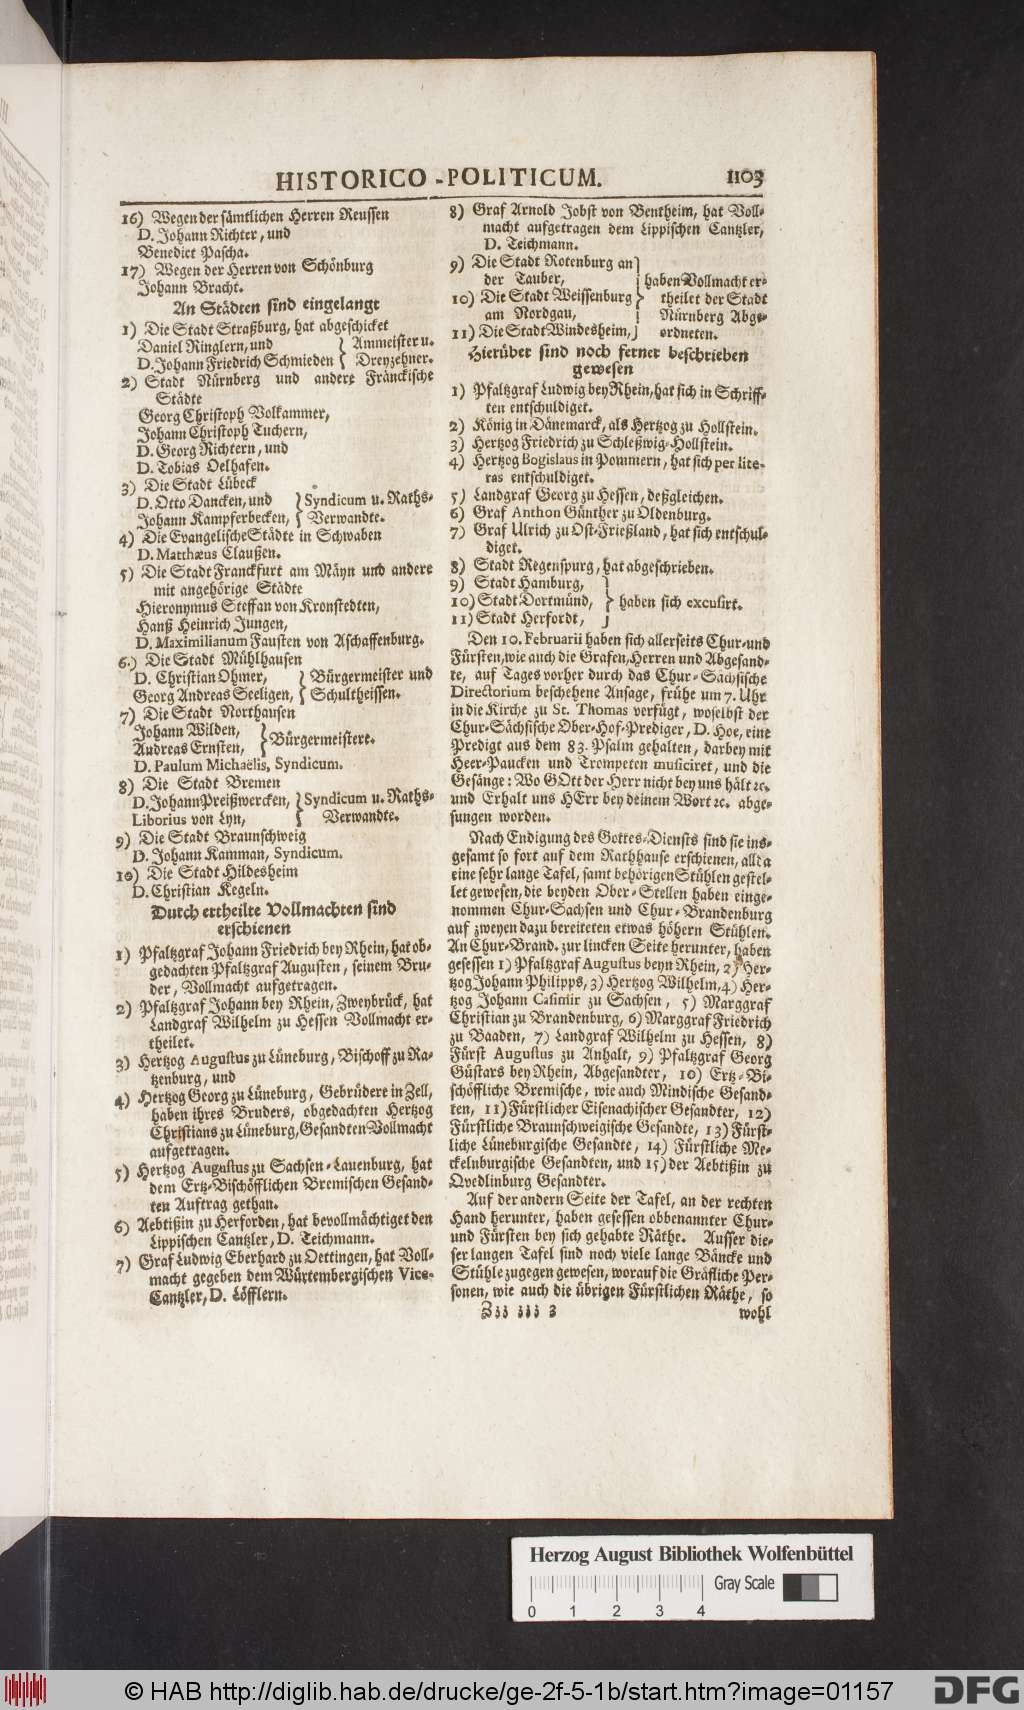 HISTORICO-POLITICUM. 1103
16) Wegen der sämtlichen Herren Reussen
D. Johann Richter, und
Benedict Pascha.
17) Wegen der Herren von Schönburg
Johann Bracht.
An Städten sind eingelangt
1) Die Stadt Straßburg, hat abgeschicket
Daniel Ringlern, und } Ammeister u.
D. Johann Friedrich Schmieden { Dreyzehner.
2) Stadt Nürnberg und andere Fränckische
Städte
Georg Christoph Volkammer,
Johann Christoph Tuchern,
D. Georg Richtern, und
D. Tobias Oelhafen.
3) Die Stadt Lübeck
D. Otto Dancken, und } Syndicum u. Raths-
Johann Kampferbecken, { Verwandte.
4) Die Evangelische Städte in Schwaben
D. Matthæus Claußen.
5) Die Stadt Franckfurt am Mäyn und andere
mit angehörige Städte
Hieronymus Steffan von Kronstedten,
Hanß Heinrich Jungen,
D. Maximilianum Fausten von Aschaffenburg.
6.) Die Stadt Mühlhausen
D. Christian Ohmer, } Bürgermeister und
Georg Andreas Seeligen, { Schultheissen.
7) Die Stadt Northausen
Johann Wilden, }
Andreas Ernsten, } Bürgermeistere.
D. Paulum Michaëlis, Syndicum.
8) Die Stadt Bremen
D. Johann Preißwercken, } Syndicum u. Raths-
Liborius von Lyn, { Verwandte.
9) Die Stadt Braunschweig
D. Johann Kamman, Syndicum.
10) Die Stadt Hildesheim
D. Christian Kegeln.
Durch ertheilte Vollmachten sind
erschienen
1) Pfaltzgraf Johann Friedrich bey Rhein, hat ob-
gedachten Pfaltzgraf Augusten, seinem Bru-
der, Vollmacht aufgetragen.
2) Pfaltzgraf Johann bey Rhein, Zweybrück, hat
Landgraf Wilhelm zu Hessen Vollmacht er-
theilet.
3) Hertzog Augustus zu Lüneburg, Bischoff zu Ra-
tzenburg, und
4) Hertzog Georg zu Lüneburg, Gebrüdere in Zell,
haben ihres Bruders, obgedachten Hertzog
Christians zu Lüneburg, Gesandten Vollmacht
aufgetragen.
5) Hertzog Augustus zu Sachsen-Lauenburg, hat
dem Ertz-Bischöfflichen Bremischen Gesand-
ten Auftrag gethan.
6) Aebtißin zu Herforden, hat bevollmächtiget den
Lippischen Cantzler, D. Teichmann.
7) Graf Ludwig Eberhard zu Oettingen, hat Voll-
macht gegeben dem Würtembergischen Vice-
Cantzler, D. Löfflern.
8) Graf Arnold Jobst von Bentheim, hat Voll-
macht aufgetragen dem Lippischen Cantzler,
D. Teichmann.
9) Die Stadt Rotenburg an
der Tauber, } haben Vollmacht er-
10) Die Stadt Weissenburg } theilet der Stadt
am Nordgau, Nürnberg Abge-
11) Die Stadt Windesheim, } ordneten.
Hierüber sind noch ferner beschrieben
gewesen
1) Pfaltzgraf Ludwig bey Rhein, hat sich in Schriff-
ten entschuldiget.
2) König in Dänemarck, als Hertzog zu Hollstein.
3) Hertzog Friedrich zu Schleßwig-Hollstein.
4) Hertzog Bogislaus in Pommern, hat sich per lite-
ras entschuldiget.
5) Landgraf Georg zu Hessen, deßgleichen.
6) Graf Anthon Günther zu Oldenburg.
7) Graf Ulrich zu Ost-Frießland, hat sich entschul-
diget.
8) Stadt Regenspurg, hat abgeschrieben.
9) Stadt Hamburg, }
10) Stadt Dortmünd, } haben sich excusirt.
11) Stadt Herfordt, }
Den 10. Februarii haben sich allerseits Chur-und
Fürsten, wie auch die Grafen, Herren und Abgesand-
te, auf Tages vorher durch das Chur-Sächsische
Directorium beschehene Ansage, frühe um 7. Uhr
in die Kirche zu St. Thomas verfügt, woselbst der
Chur-Sächsische Ober-Hof-Prediger, D. Hoe, eine
Predigt aus dem 83. Psalm gehalten, darbey mit
Heer-Paucken und Trompeten musiciret, und die
Gesänge: Wo GOtt der Herr nicht bey uns hält ꝛc.
und Erhalt uns HErr bey deinem Wort ꝛc. abge-
sungen worden.
Nach Endigung des Gottes-Diensts sind sie ins-
gesamt so fort auf dem Rathhause erschienen, allda
eine sehr lange Tafel, samt behörigen Stühlen gestel-
let gewesen, die beyden Ober-Stellen haben einge-
nommen Chur-Sachsen und Chur-Brandenburg
auf zweyen dazu bereiteten etwas höhern Stühlen.
An Chur-Brand. zur lincken Seite herunter, haben
gesessen 1) Pfaltzgraf Augustus beyn Rhein, 2) Her-
tzog Johann Philipps, 3) Hertzog Wilhelm, 4) Her-
tzog Johann Casimir zu Sachsen, 5) Marggraf
Christian zu Brandenburg, 6) Marggraf Friedrich
zu Baaden, 7) Landgraf Wilhelm zu Hessen, 8)
Fürst Augustus zu Anhalt, 9) Pfaltzgraf Georg
Güstars bey Rhein, Abgesandter, 10) Ertz-Bi-
schöffliche Bremische, wie auch Mindische Gesand-
ten, 11) Fürstlicher Eisenachischer Gesandter, 12)
Fürstliche Braunschweigische Gesandte, 13) Fürst-
liche Lüneburgische Gesandte, 14) Fürstliche Me-
ckelnburgische Gesandten, und 15) der Aebtißin zu
Qvedlinburg Gesandter.
Auf der andern Seite der Tafel, an der rechten
Hand herunter, haben gesessen obbenannter Chur-
und Fürsten bey sich gehabte Räthe. Ausser die-
ser langen Tafel sind noch viele lange Bäncke und
Stühle zugegen gewesen, worauf die Gräfliche Per-
sonen, wie auch die übrigen Fürstlichen Räthe, so
Zzz zzz 3 wohl
Herzog August Bibliothek Wolfenbüttel
Gray Scale
0 1 2 3 4
© HAB http://diglib.hab.de/drucke/ge-2f-5-1b/start.htm?image=01157
DFG